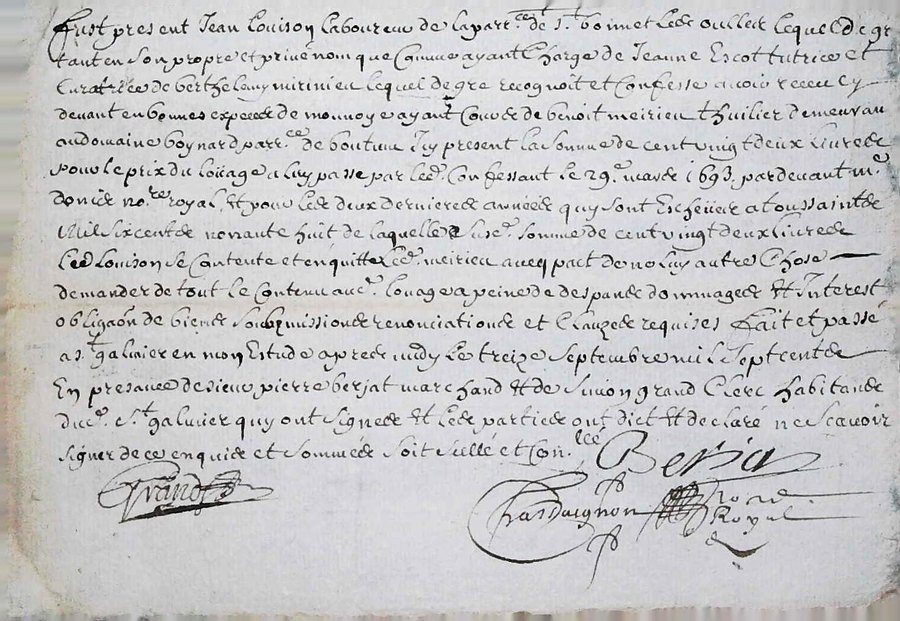 Fust present Jean Louison laboureur de la parr.ce de S.t bonnet les oulles lequel de gr
tant en son propre et privé nom que Comme ayant Charge de Jeanne Escot tutrice et
Curatrice de berthelemy mirinieu lequel de gre recognoit et Confesse avoir receu Cy
devant en bonnes especes de monnoye ayant Cours de benoit meirieu thuilier demeurant
au domaine boynard parr.ce de bouteon Icy present la Somme de cent vingt deux livres
pour le prix du louage a luy passe par led. Confessant le 29.e mars 1693 pardevant m.e
no.re royal, Et pour les deux dernieres années quy sont Escheües a toussaintz
Mil Six cents nonante huit de laquelle susd. somme de cent vingt deux livres
led Louison se Contente et en quitte led. meirieu avecq pact de no luy autre Chose
demander de tout le Contenu aud. louage a peine de despans dommages Et Interest
obligaõn de biens Soubzmissions renonciations et Clauzes requises Fait et passé
a S.t galmier en mon Estude apres midy le treize Septembre mil Sept cents
En presance de sieur pierre berjat marchand Et de Simon grand Clerc habitans
dud. S.t galmier quy ont Signes Et les parties ont dict Et declaré ne Scavoir
signer de ce enquis et Sommés Soit Sellé et Con.lee Berjat
Grand
Chasaignon No.re
Royal